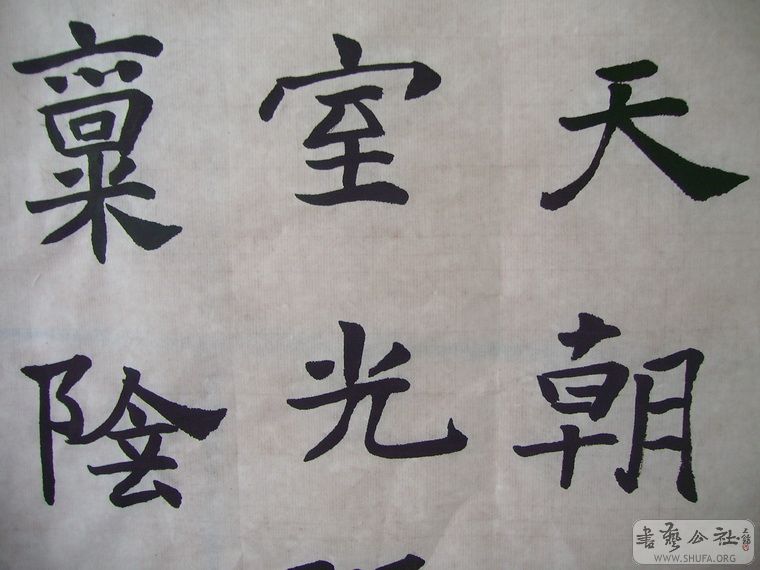 天朝
室光
稟陰
書藝公社
WWW.SHUFA.ORG